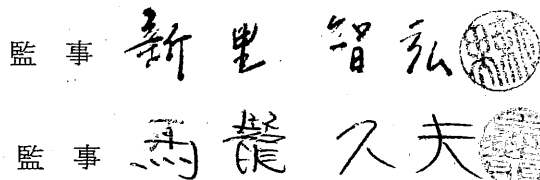 監事 新里 智弘
監事 馬籠 久夫